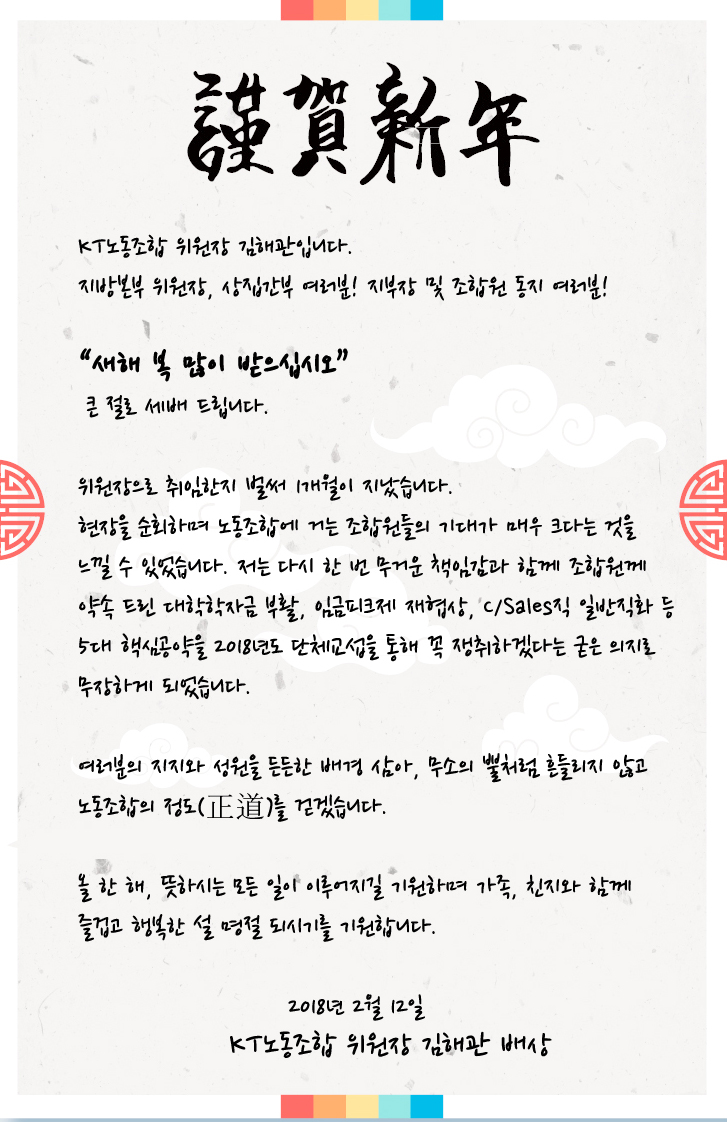 謹賀新年
KT노동조합 위원장 김해관입니다.
지방본부 위원장, 상집간부 여러분! 지부장 및 조합원 동지 여러분!
“새해 복 많이 받으십시오”
큰 절로 세배 드립니다.
위원장으로 취임한지 벌써 1개월이 지났습니다.
현장을 순회하며 노동조합에 거는 조합원들의 기대가 매우 크다는 것을
느낄 수 있었습니다. 저는 다시 한 번 무거운 책임감과 함께 조합원께
약속 드린 대학학자금 부활, 임금피크제 재협상, C/Sales직 일반직화 등
5대 핵심공약을 2018년도 단체교섭을 통해 꼭 쟁취하겠다는 굳은 의지로
무장하게 되었습니다.
여러분의 지지와 성원을 든든한 배경 삼아, 무소의 뿔처럼 흔들리지 않고
노동조합의 정도(正道)를 걷겠습니다.
올 한 해, 뜻하시는 모든 일이 이루어지길 기원하며 가족, 친지와 함께
즐겁고 행복한 설 명절 되시기를 기원합니다.
2018년 2월 12일
KT노동조합 위원장 김해관 배상